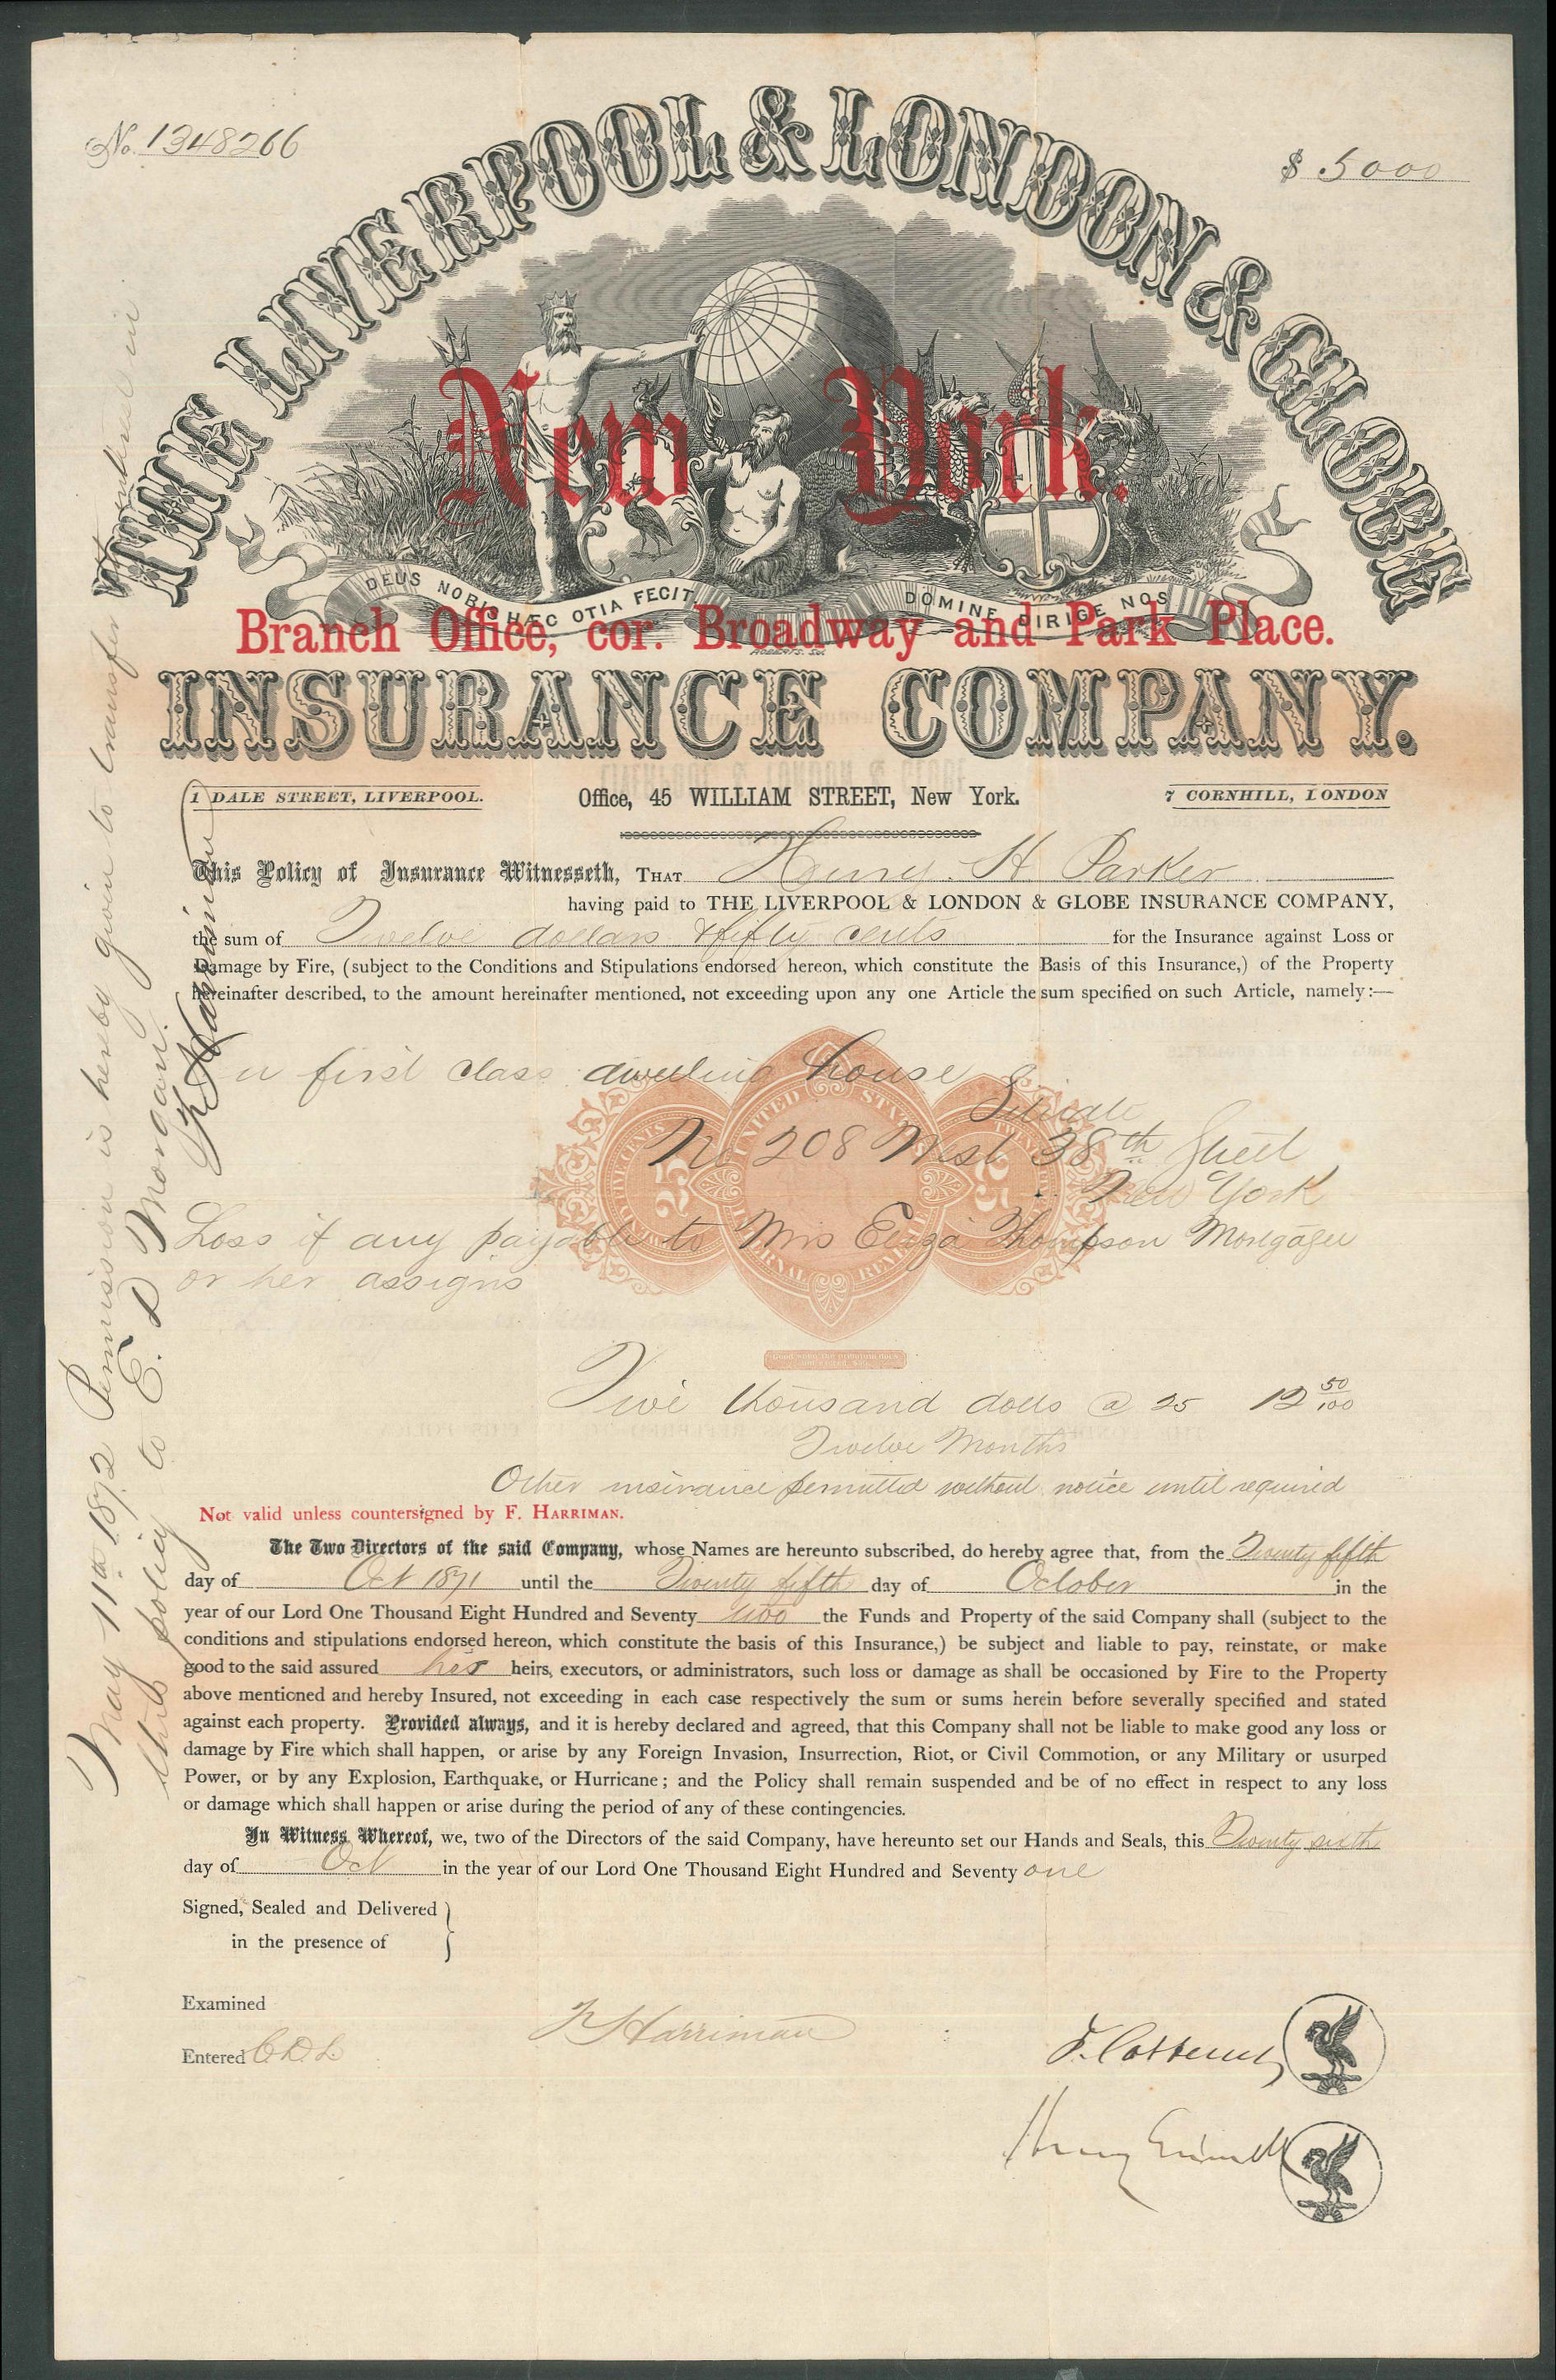 No. 1348266
$ 5000
THE LIVERPOOL & LONDON & GLOBE
New York.
DEUS NOBIS HÆC OTIA FECIT
DOMINE DIRIGE NOS
Branch Office, cor. Broadway and Park Place.
ROBERTS. Sc.
INSURANCE COMPANY.
1 DALE STREET, LIVERPOOL.
Office, 45 WILLIAM STREET, New York.
7 CORNHILL, LONDON
This Policy of Insurance Witnesseth, THAT Henry H Parker
having paid to THE LIVERPOOL & LONDON & GLOBE INSURANCE COMPANY,
the sum of Twelve dollars & fifty cents for the Insurance against Loss or
Damage by Fire, (subject to the Conditions and Stipulations endorsed hereon, which constitute the Basis of this Insurance,) of the Property
hereinafter described, to the amount hereinafter mentioned, not exceeding upon any one Article the sum specified on such Article, namely:—
first class dwelling house
Situate
No 208 West 38th Street
New York
Loss if any payable to Mrs Eliza Thompson Mortgagee
or her assigns
UNITED STATES
25
25
INTERNAL REVENUE
Five thousand dolls @ 25 12 50/100
Twelve Months
Other insurance permitted without notice until required
Not valid unless countersigned by F. HARRIMAN.
The Two Directors of the said Company, whose Names are hereunto subscribed, do hereby agree that, from the Twenty fifth
day of Oct 1871 until the Twenty fifth day of October in the
year of our Lord One Thousand Eight Hundred and Seventy two the Funds and Property of the said Company shall (subject to the
conditions and stipulations endorsed hereon, which constitute the basis of this Insurance,) be subject and liable to pay, reinstate, or make
good to the said assured his heirs, executors, or administrators, such loss or damage as shall be occasioned by Fire to the Property
above mentioned and hereby Insured, not exceeding in each case respectively the sum or sums herein before severally specified and stated
against each property. Provided always, and it is hereby declared and agreed, that this Company shall not be liable to make good any loss or
damage by Fire which shall happen, or arise by any Foreign Invasion, Insurrection, Riot, or Civil Commotion, or any Military or usurped
Power, or by any Explosion, Earthquake, or Hurricane; and the Policy shall remain suspended and be of no effect in respect to any loss
or damage which shall happen or arise during the period of any of these contingencies.
In Witness Whereof, we, two of the Directors of the said Company, have hereunto set our Hands and Seals, this Twenty sixth
day of Oct in the year of our Lord One Thousand Eight Hundred and Seventy one
Signed, Sealed and Delivered
in the presence of
Examined
F Harriman
Entered C.D.L
Henry Grinnell
May 11th 1872 Permission is hereby given to transfer the interest in
this policy to E. D Morgan.
F Harriman